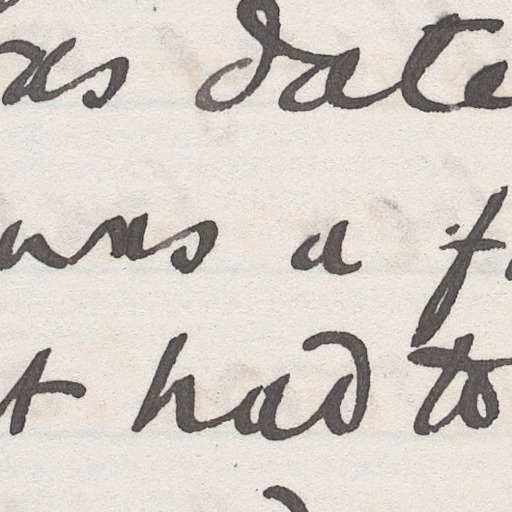 as date
was a f
t had to